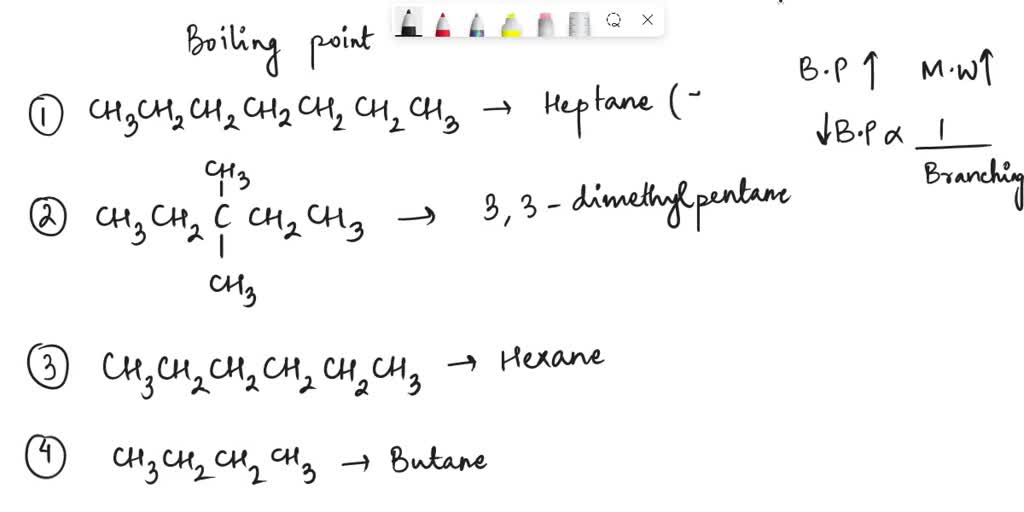 Boiling point
B.P ↑ M.W ↑
① CH₃CH₂CH₂CH₂CH₂CH₂CH₃ → Heptane (-
↓B.P ∝ 1
Branching
CH₃
② CH₃CH₂ C CH₂CH₃ → 3,3-dimethylpentane
CH₃
③ CH₃CH₂CH₂CH₂CH₂CH₃ → Hexane
④ CH₃CH₂CH₂CH₃ → Butane